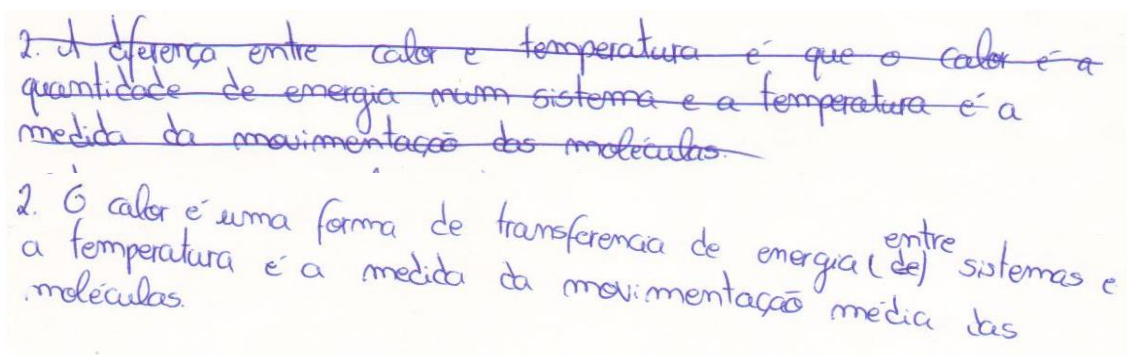 2. A diferença entre calor e temperatura é que o calor é a
quantidade de energia num sistema e a temperatura é a
medida da movimentação das moléculas.
2. O calor é uma forma de transferencia de energia (de) entre sistemas e
a temperatura é a medida da movimentação média das
moléculas.